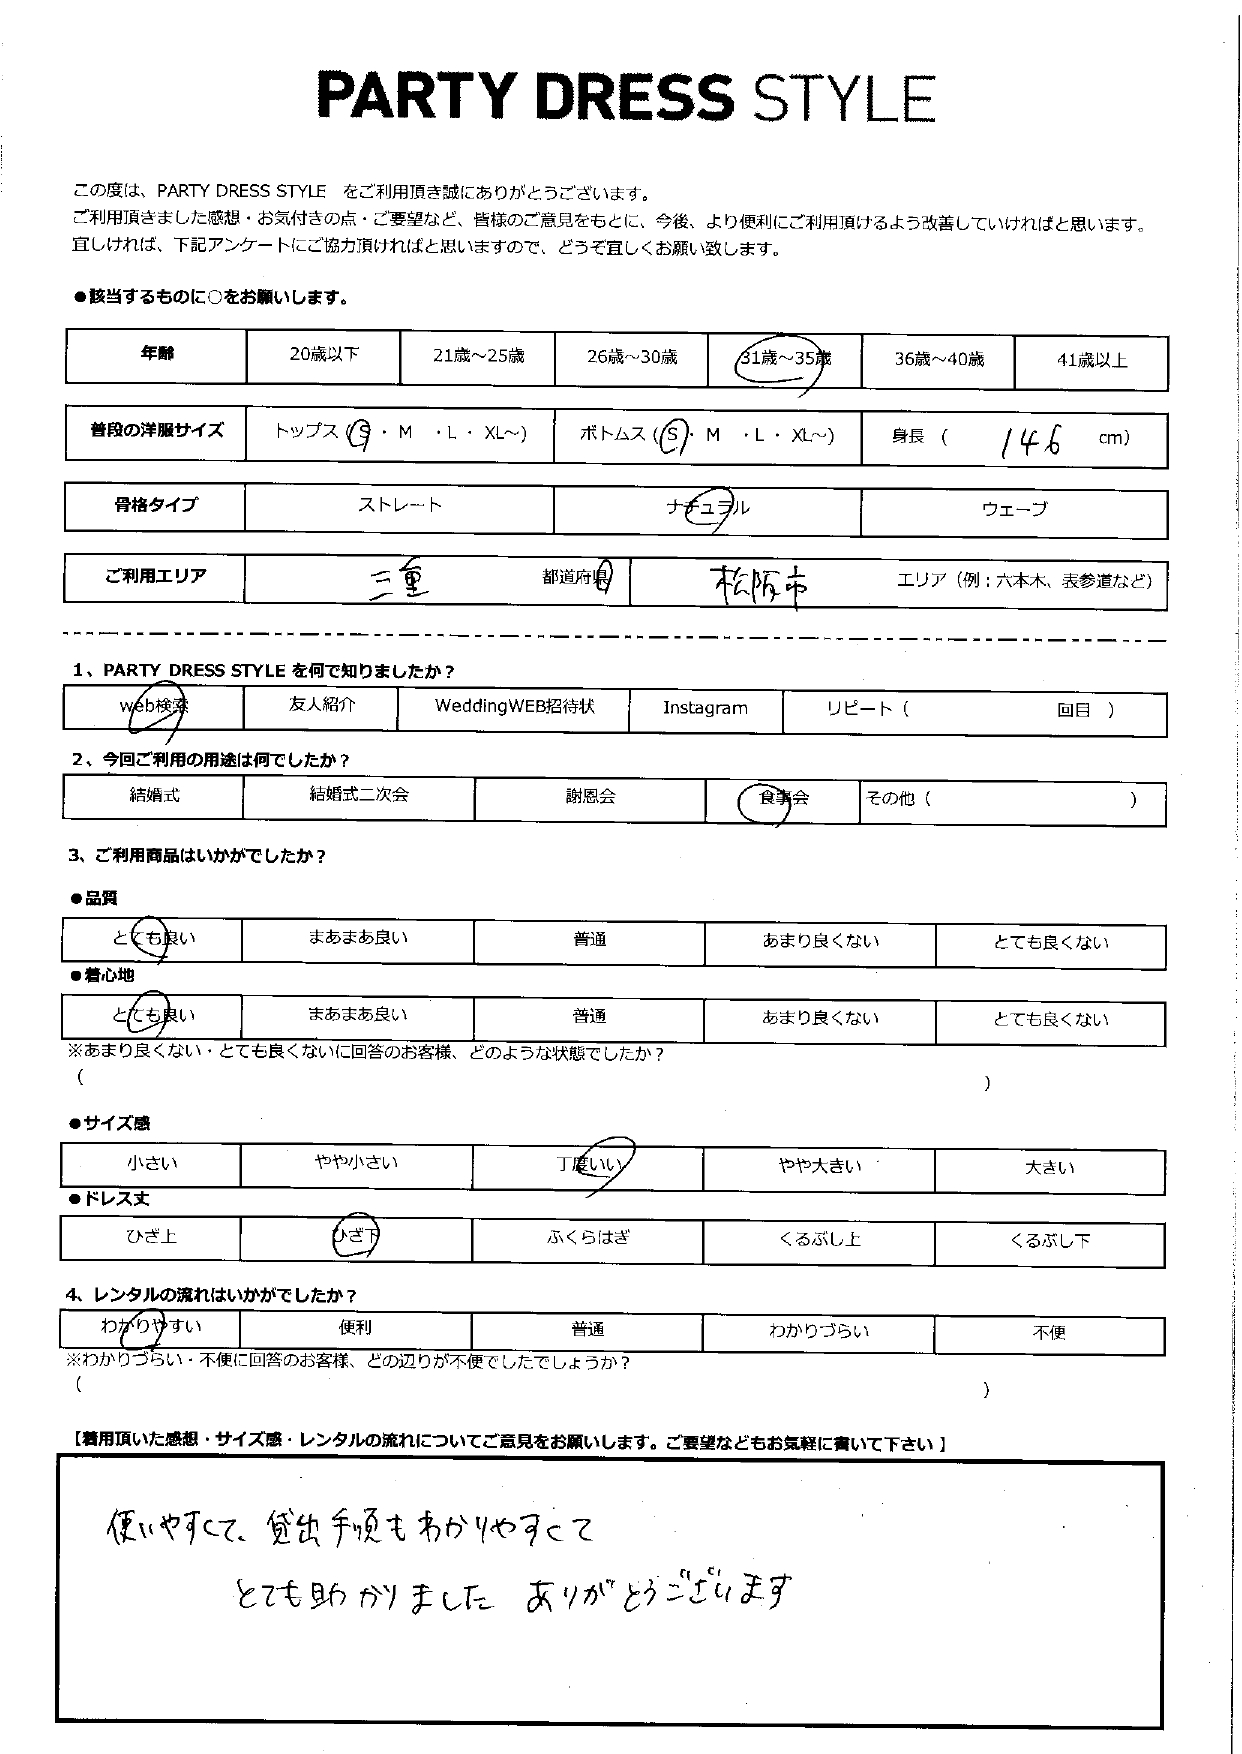 PARTY DRESS STYLE
この度は、PARTY DRESS STYLE をご利用頂き誠にありがとうございます。
ご利用頂きました感想・お気付きの点・ご要望など、皆様のご意見をもとに、今後、より便利にご利用頂けるよう改善していければと思います。
宜しければ、下記アンケートにご協力頂ければと思いますので、どうぞ宜しくお願い致します。
●該当するものに○をお願いします。
年齢 20歳以下 21歳～25歳 26歳～30歳 31歳～35歳 36歳～40歳 41歳以上
普段の洋服サイズ トップス (S ・ M ・L ・ XL～) ボトムス (S ・ M ・L ・ XL～) 身長 ( 146 cm)
骨格タイプ ストレート ナチュラル ウェーブ
ご利用エリア 三重 都道府県 松阪市 エリア（例：六本木、表参道など）
1、PARTY DRESS STYLE を何で知りましたか？
web検索 友人紹介 WeddingWEB招待状 Instagram リピート（ 回目 ）
2、今回ご利用の用途は何でしたか？
結婚式 結婚式二次会 謝恩会 食事会 その他（ ）
3、ご利用商品はいかがでしたか？
●品質
とても良い まあまあ良い 普通 あまり良くない とても良くない
●着心地
とても良い まあまあ良い 普通 あまり良くない とても良くない
※あまり良くない・とても良くないに回答のお客様、どのような状態でしたか？
( )
●サイズ感
小さい やや小さい 丁度いい やや大きい 大きい
●ドレス丈
ひざ上 ひざ下 ふくらはぎ くるぶし上 くるぶし下
4、レンタルの流れはいかがでしたか？
わかりやすい 便利 普通 わかりづらい 不便
※わかりづらい・不便に回答のお客様、どの辺りが不便でしたでしょうか？
( )
【着用頂いた感想・サイズ感・レンタルの流れについてご意見をお願いします。ご要望などもお気軽に書いて下さい】
使いやすくて、貸出手順もわかりやすくて
とても助かりました ありがとうございます